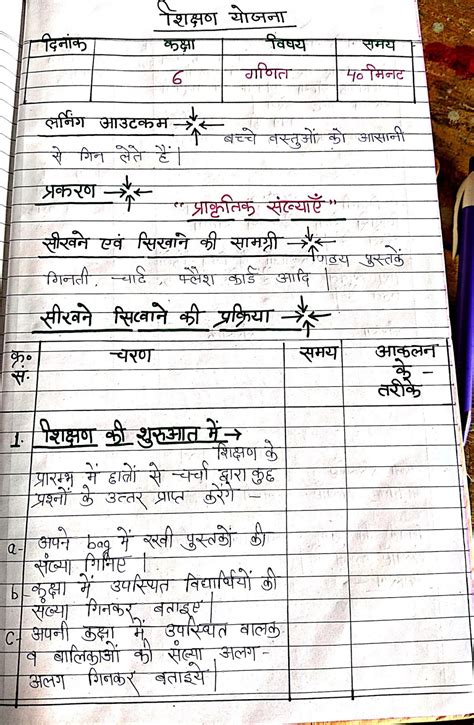 शिक्षण योजना
दिनांक कक्षा विषय समय
6 गणित 40 मिनट
लर्निंग आउटकम →
बच्चे वस्तुओं को आसानी
से गिन लेते हैं |
प्रकरण →
"प्राकृतिक संख्याएँ"
सीखने एवं सिखाने की सामग्री →
पाठ्य पुस्तकें
गिनती चार्ट, फ्लैश कार्ड आदि |
सीखने सिखाने की प्रक्रिया →
क्र० सं. चरण समय आकलन के - तरीके
1. शिक्षण की शुरुआत में →
शिक्षण के
प्रारम्भ में छात्रों से चर्चा द्वारा कुछ
प्रश्नों के उत्तर प्राप्त करेंगे -
a- अपने bag में रखी पुस्तकों की
संख्या गिनिए |
b- कक्षा में उपस्थित विद्यार्थियों की
संख्या गिनकर बताइए |
c- अपनी कक्षा में उपस्थित बालक
व बालिकाओं की संख्या अलग -
अलग गिनकर बताइये |